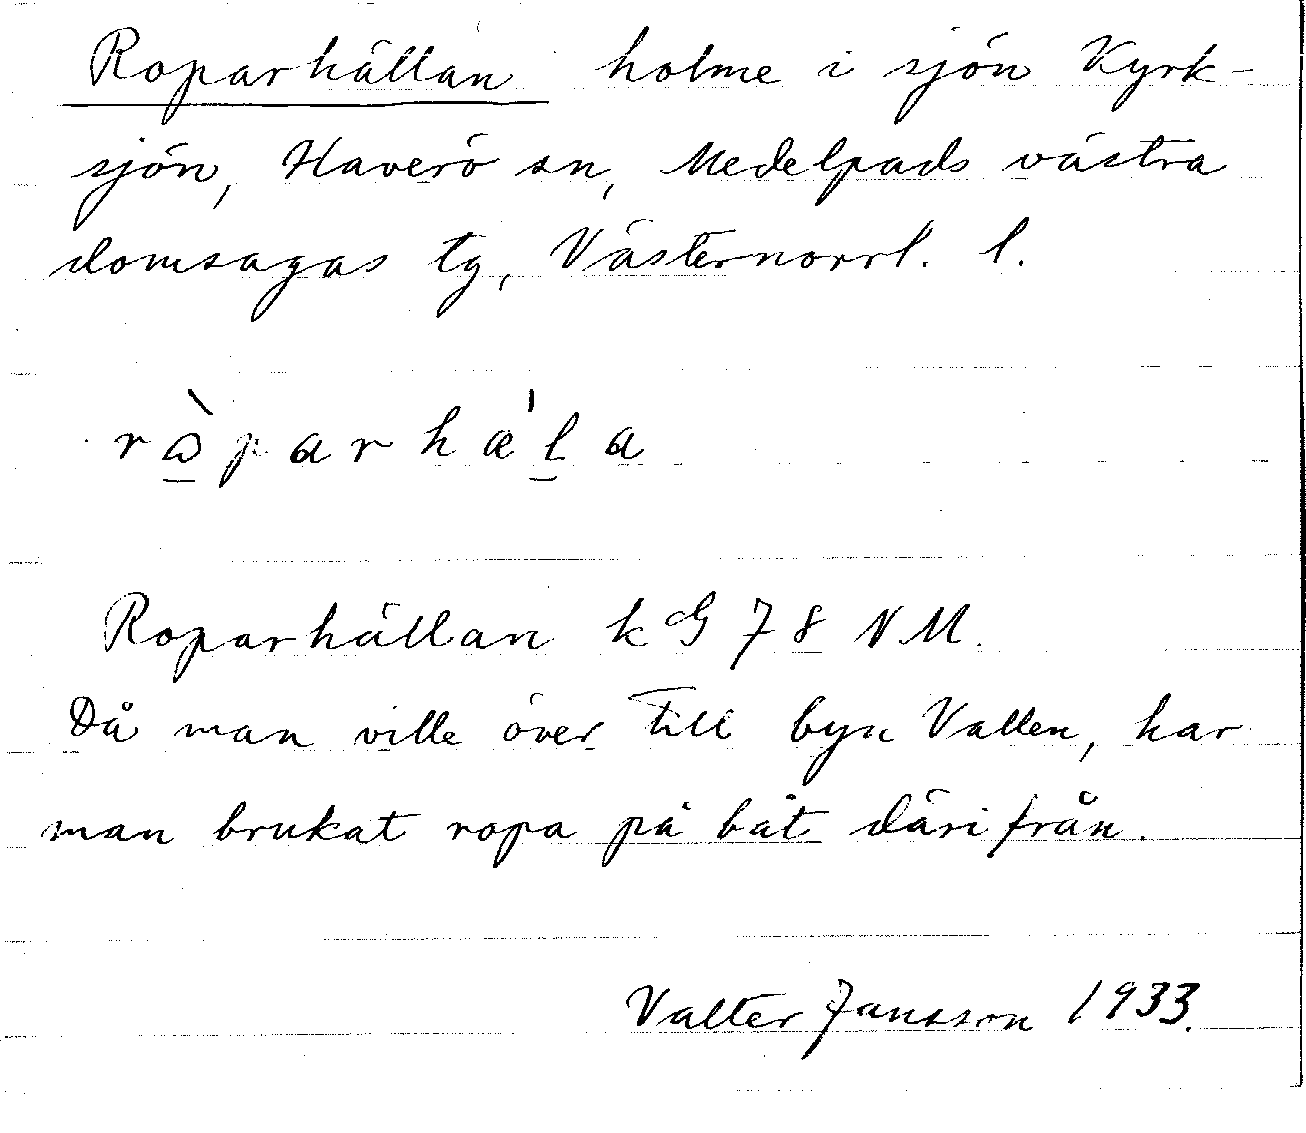 Roparhällan holme i sjön Kyrk-
sjön, Haverö sn, Medelpads västra
domsagas tg, Västernorrl. l.
ròparhæ'la
Roparhällan kG 78 NM.
Då man ville över till byn Vallen, har
man brukat ropa på båt därifrån.
Valter Jansson 1933.